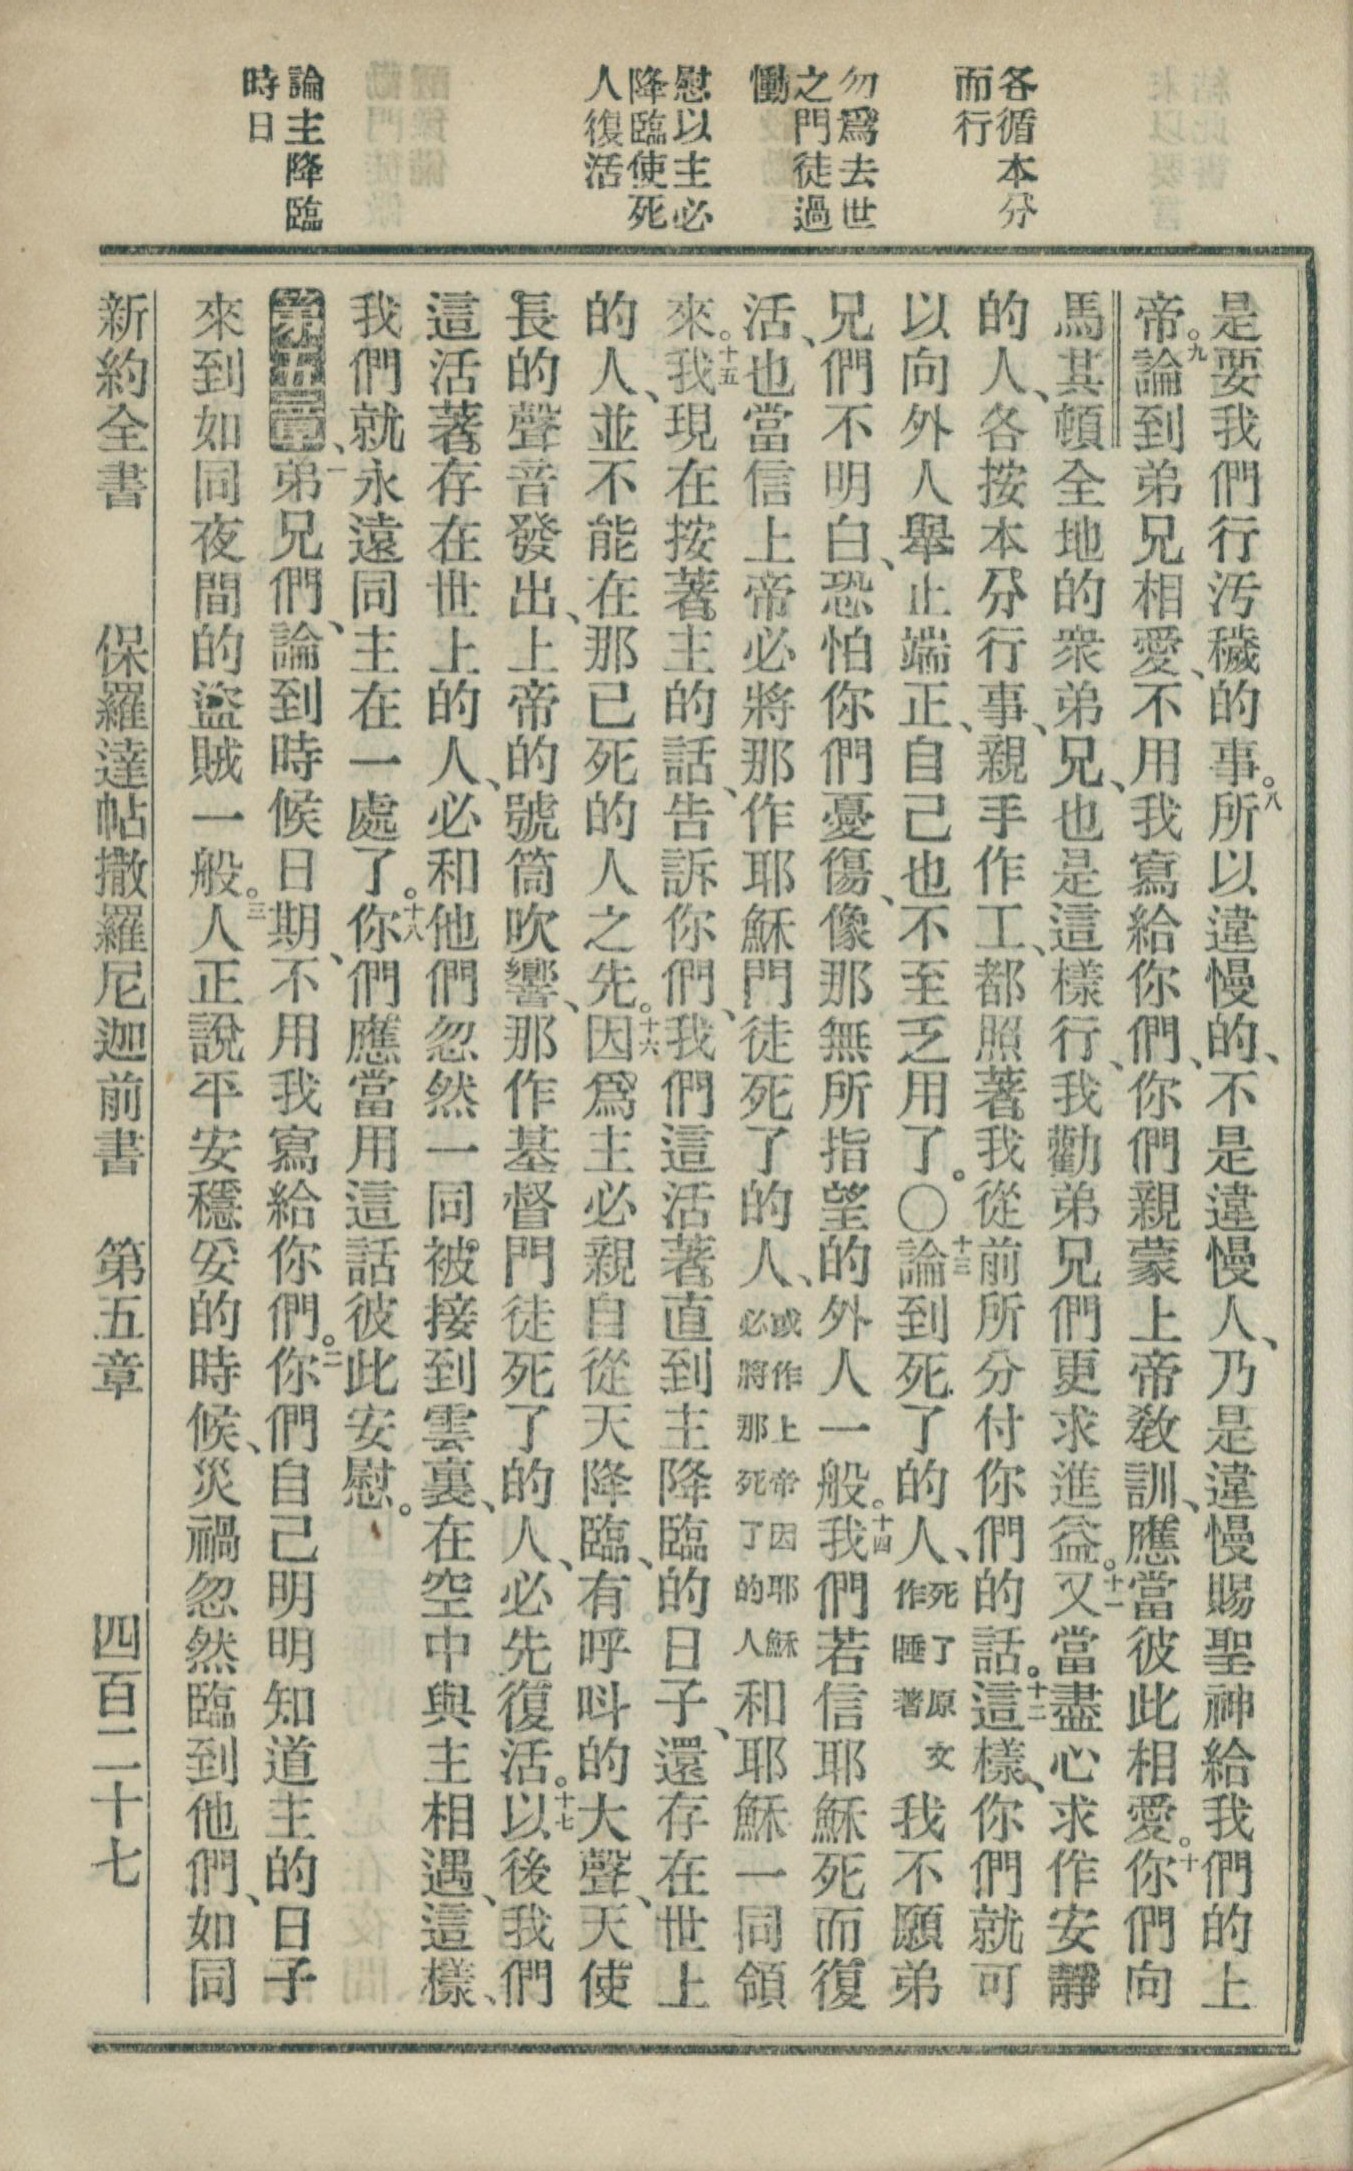 各循本分
而行
勿爲去世
之門徒過
慟
慰以主必
降臨使死
人復活
論主降臨
時日
是要我們行汚穢的事。八所以違慢的、不是違慢人、乃是違慢賜聖神給我們的上
帝。九論到弟兄相愛、不用我寫給你們、你們親蒙上帝敎訓、應當彼此相愛。十你們向
馬其頓全地的衆弟兄、也是這樣行、我勸弟兄們更求進益。十一又當盡心求作安靜
的人、各按本分行事、親手作工、都照著我從前所分付你們的話。十二這樣、你們就可
以向外人舉止端正、自己也不至乏用了。〇十三論到死了的人、死了原文作睡著我不願弟
兄們不明白、恐怕你們憂傷、像那無所指望的外人一般。十四我們若信耶穌死而復
活、也當信上帝必將那作耶穌門徒死了的人、或作上帝因耶穌必將那死了的人和耶穌一同領
來。十五我現在按著主的話、告訴你們、我們這活著直到主降臨的日子、還存在世上
的人、並不能在那已死的人之先。十六因爲主必親自從天降臨、有呼呌的大聲、天使
長的聲音發出、上帝的號筒吹響、那作基督門徒死了的人、必先復活。十七以後我們
這活著存在世上的人、必和他們忽然一同被接到雲裏、在空中與主相遇、這樣、
我們就永遠同主在一處了。十八你們應當用這話彼此安慰。
第五章、一弟兄們、論到時候日期、不用我寫給你們。二你們自己明明知道主的日子
來到如同夜間的盜賊一般。三人正說平安穩妥的時候、災禍忽然臨到他們、如同
新約全書　保羅達帖撒羅尼迦前書　第五章　四百二十七